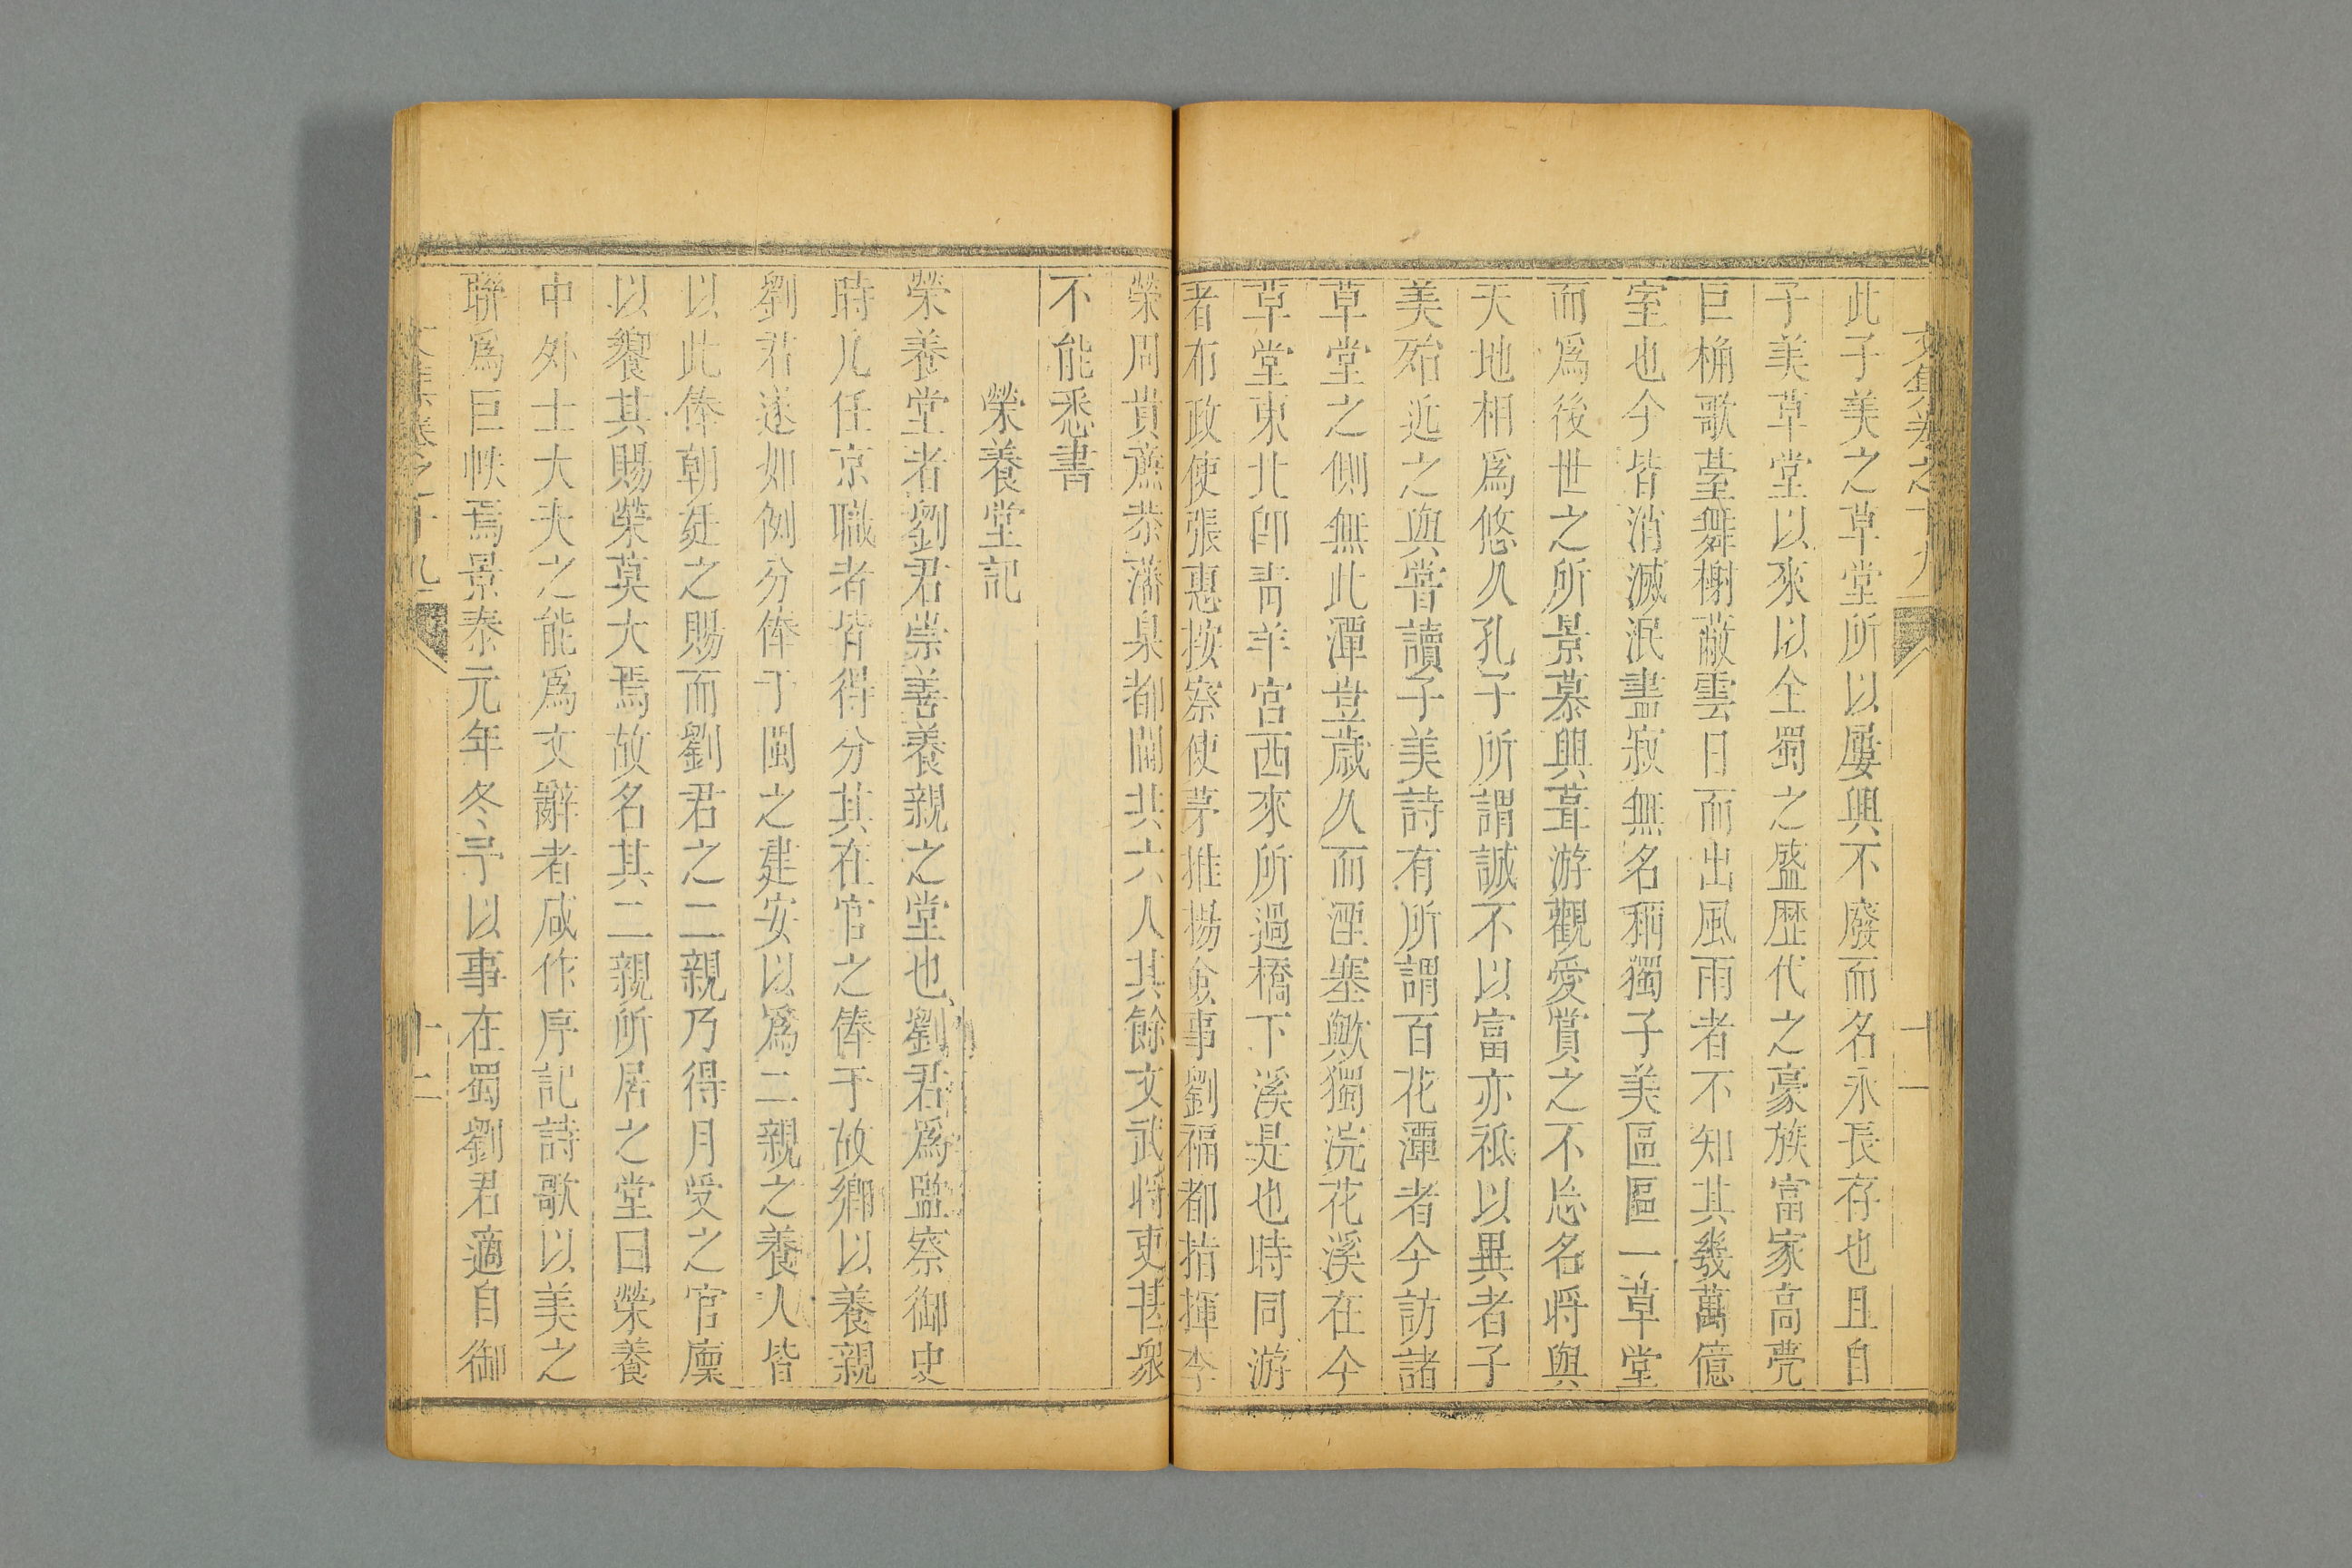 此子美之草堂所以屢興不廢而名永長存也且自
子美草堂以來以全蜀之盛歷代之豪族富家高甍
巨桷歌臺舞榭蔽雲日而出風雨者不知其幾萬億
室也今皆消滅泯盡寂無名稱獨子美區區一草堂
而爲後世之所景慕興葺游觀愛賞之不忘名將與
天地相爲悠久孔子所謂誠不以富亦祗以異者子
美殆近之與嘗讀子美詩有所謂百花潭者今訪諸
草堂之側無此潭豈歲久而湮塞歟獨浣花溪在今
草堂東北卽靑羊宮西來所過橋下溪是也時同游
者布政使張惠按察使茅推揚僉事劉福都指揮李
榮周貴燕恭藩臬都閫共六人其餘文武將吏甚衆
不能悉書
榮養堂記
榮養堂者劉君崇善養親之堂也劉君爲監察御史
時凡任京職者皆得分其在官之俸于故鄉以養親
劉君遂如例分俸于閩之建安以爲二親之養人皆
以此俸朝廷之賜而劉君之二親乃得月受之官廩
以饗其賜榮莫大焉故名其二親所居之堂曰榮養
中外士大夫之能爲文辭者咸作序記詩歌以美之
聯爲巨帙焉景泰元年冬予以事在蜀劉君適自御
文集卷之十九
十二